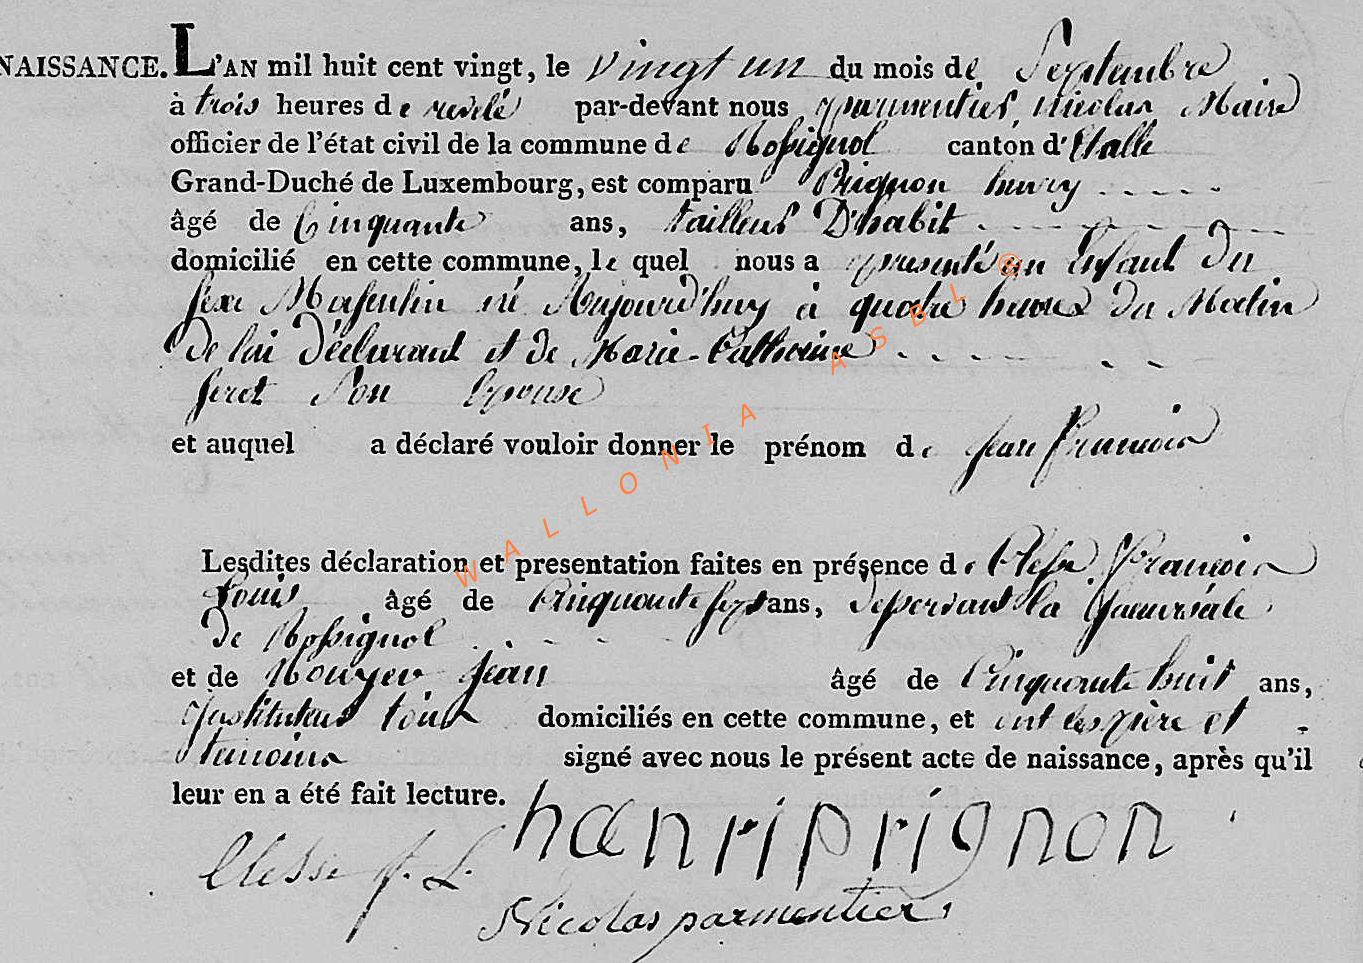 NAISSANCE. L'AN mil huit cent vingt, le vingt un du mois de Septembre
à trois heures de relevé par-devant nous parmentier, nicolas Maire
officier de l'état civil de la commune de Rossignol canton d'Etalle
Grand-Duché de Luxembourg, est comparu Prignon henry
âgé de Cinquante ans, tailleur D'habit
domicilié en cette commune, le quel nous a presenté un Enfant Du
sexe Masculin né Aujourd'huy à quatre heures du Matin
De lui Déclarant et de Marie-Catherine
feret Son Epouse
et auquel a déclaré vouloir donner le prénom de jean francois
Lesdites déclaration et presentation faites en présence de Clesse francois
Louis âgé de Cinquante sept ans, Desservant la succursale
de Rossignol
et de jean âgé de Cinquante huit ans,
Instituteur tous domiciliés en cette commune, et ont les père et
temoins signé avec nous le présent acte de naissance, après qu'il
leur en a été fait lecture.
hanriprignon
Clesse f. L.
Nicolas parmentier
WALLONIA ASBL ©